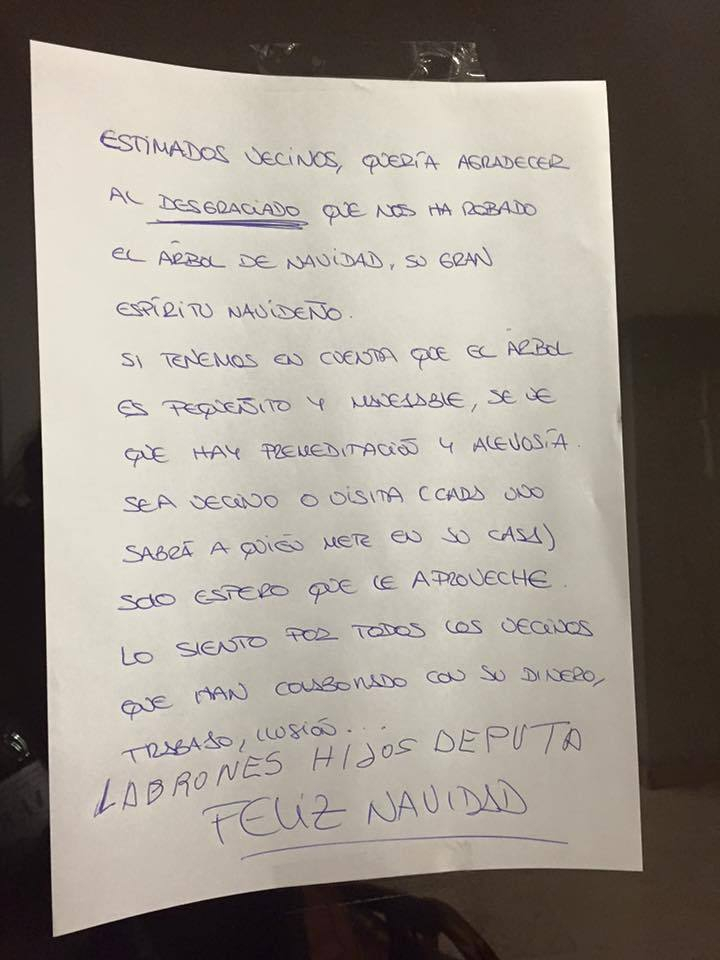 ESTIMADOS VECINOS, QUERÍA AGRADECER
AL DESGRACIADO QUE NOS HA ROBADO
EL ÁRBOL DE NAVIDAD, SU GRAN
ESPÍRITU NAVIDEÑO.
SI TENEMOS EN CUENTA QUE EL ÁRBOL
ES PEQUEÑITO Y MANEJABLE, SE VE
QUE HAY PREMEDITACIÓN Y ALEVOSÍA.
SEA VECINO O VISITA (CADA UNO
SABRÁ A QUIÉN METE EN SU CASA)
SOLO ESPERO QUE LE APROVECHE.
LO SIENTO POR TODOS LOS VECINOS
QUE HAN COLABORADO CON SU DINERO,
TRABAJO, ILUSIÓN...
LABRONES HIJOS DEPUTA
FELIZ NAVIDAD